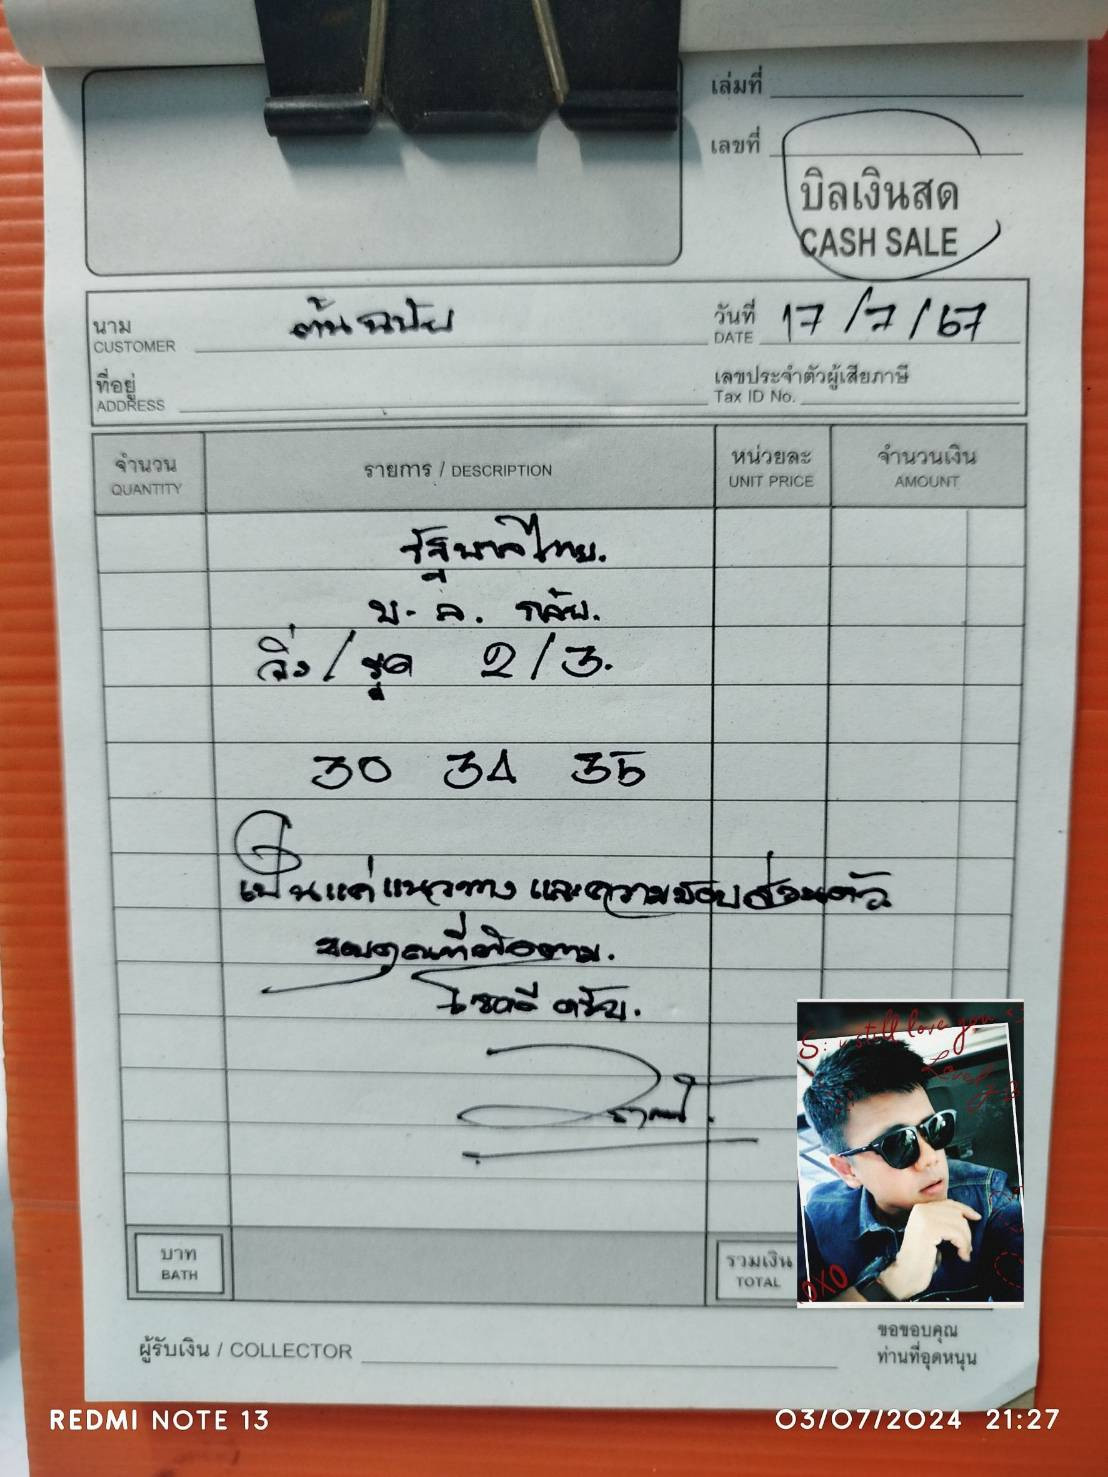 เล่มที่
เลขที่
บิลเงินสด
CASH SALE
นาม
CUSTOMER
ต้นฉบับ
วันที่
DATE
17/7/67
ที่อยู่
ADDRESS
เลขประจำตัวผู้เสียภาษี
Tax ID No.
จำนวน
QUANTITY
รายการ / DESCRIPTION
หน่วยละ
UNIT PRICE
จำนวนเงิน
AMOUNT
รัฐบาลไทย.
บ.ล.
วิ่ง/รูด 2/3.
30 34 35
เป็นแค่แนวทาง และความชอบส่วนตัว
ขอบคุณที่ติดตาม.
โชคดี ครับ.
still love you
บาท
BATH
รวมเงิน
TOTAL
ผู้รับเงิน / COLLECTOR
ขอขอบคุณ
ท่านที่อุดหนุน
REDMI NOTE 13
03/07/2024 21:27